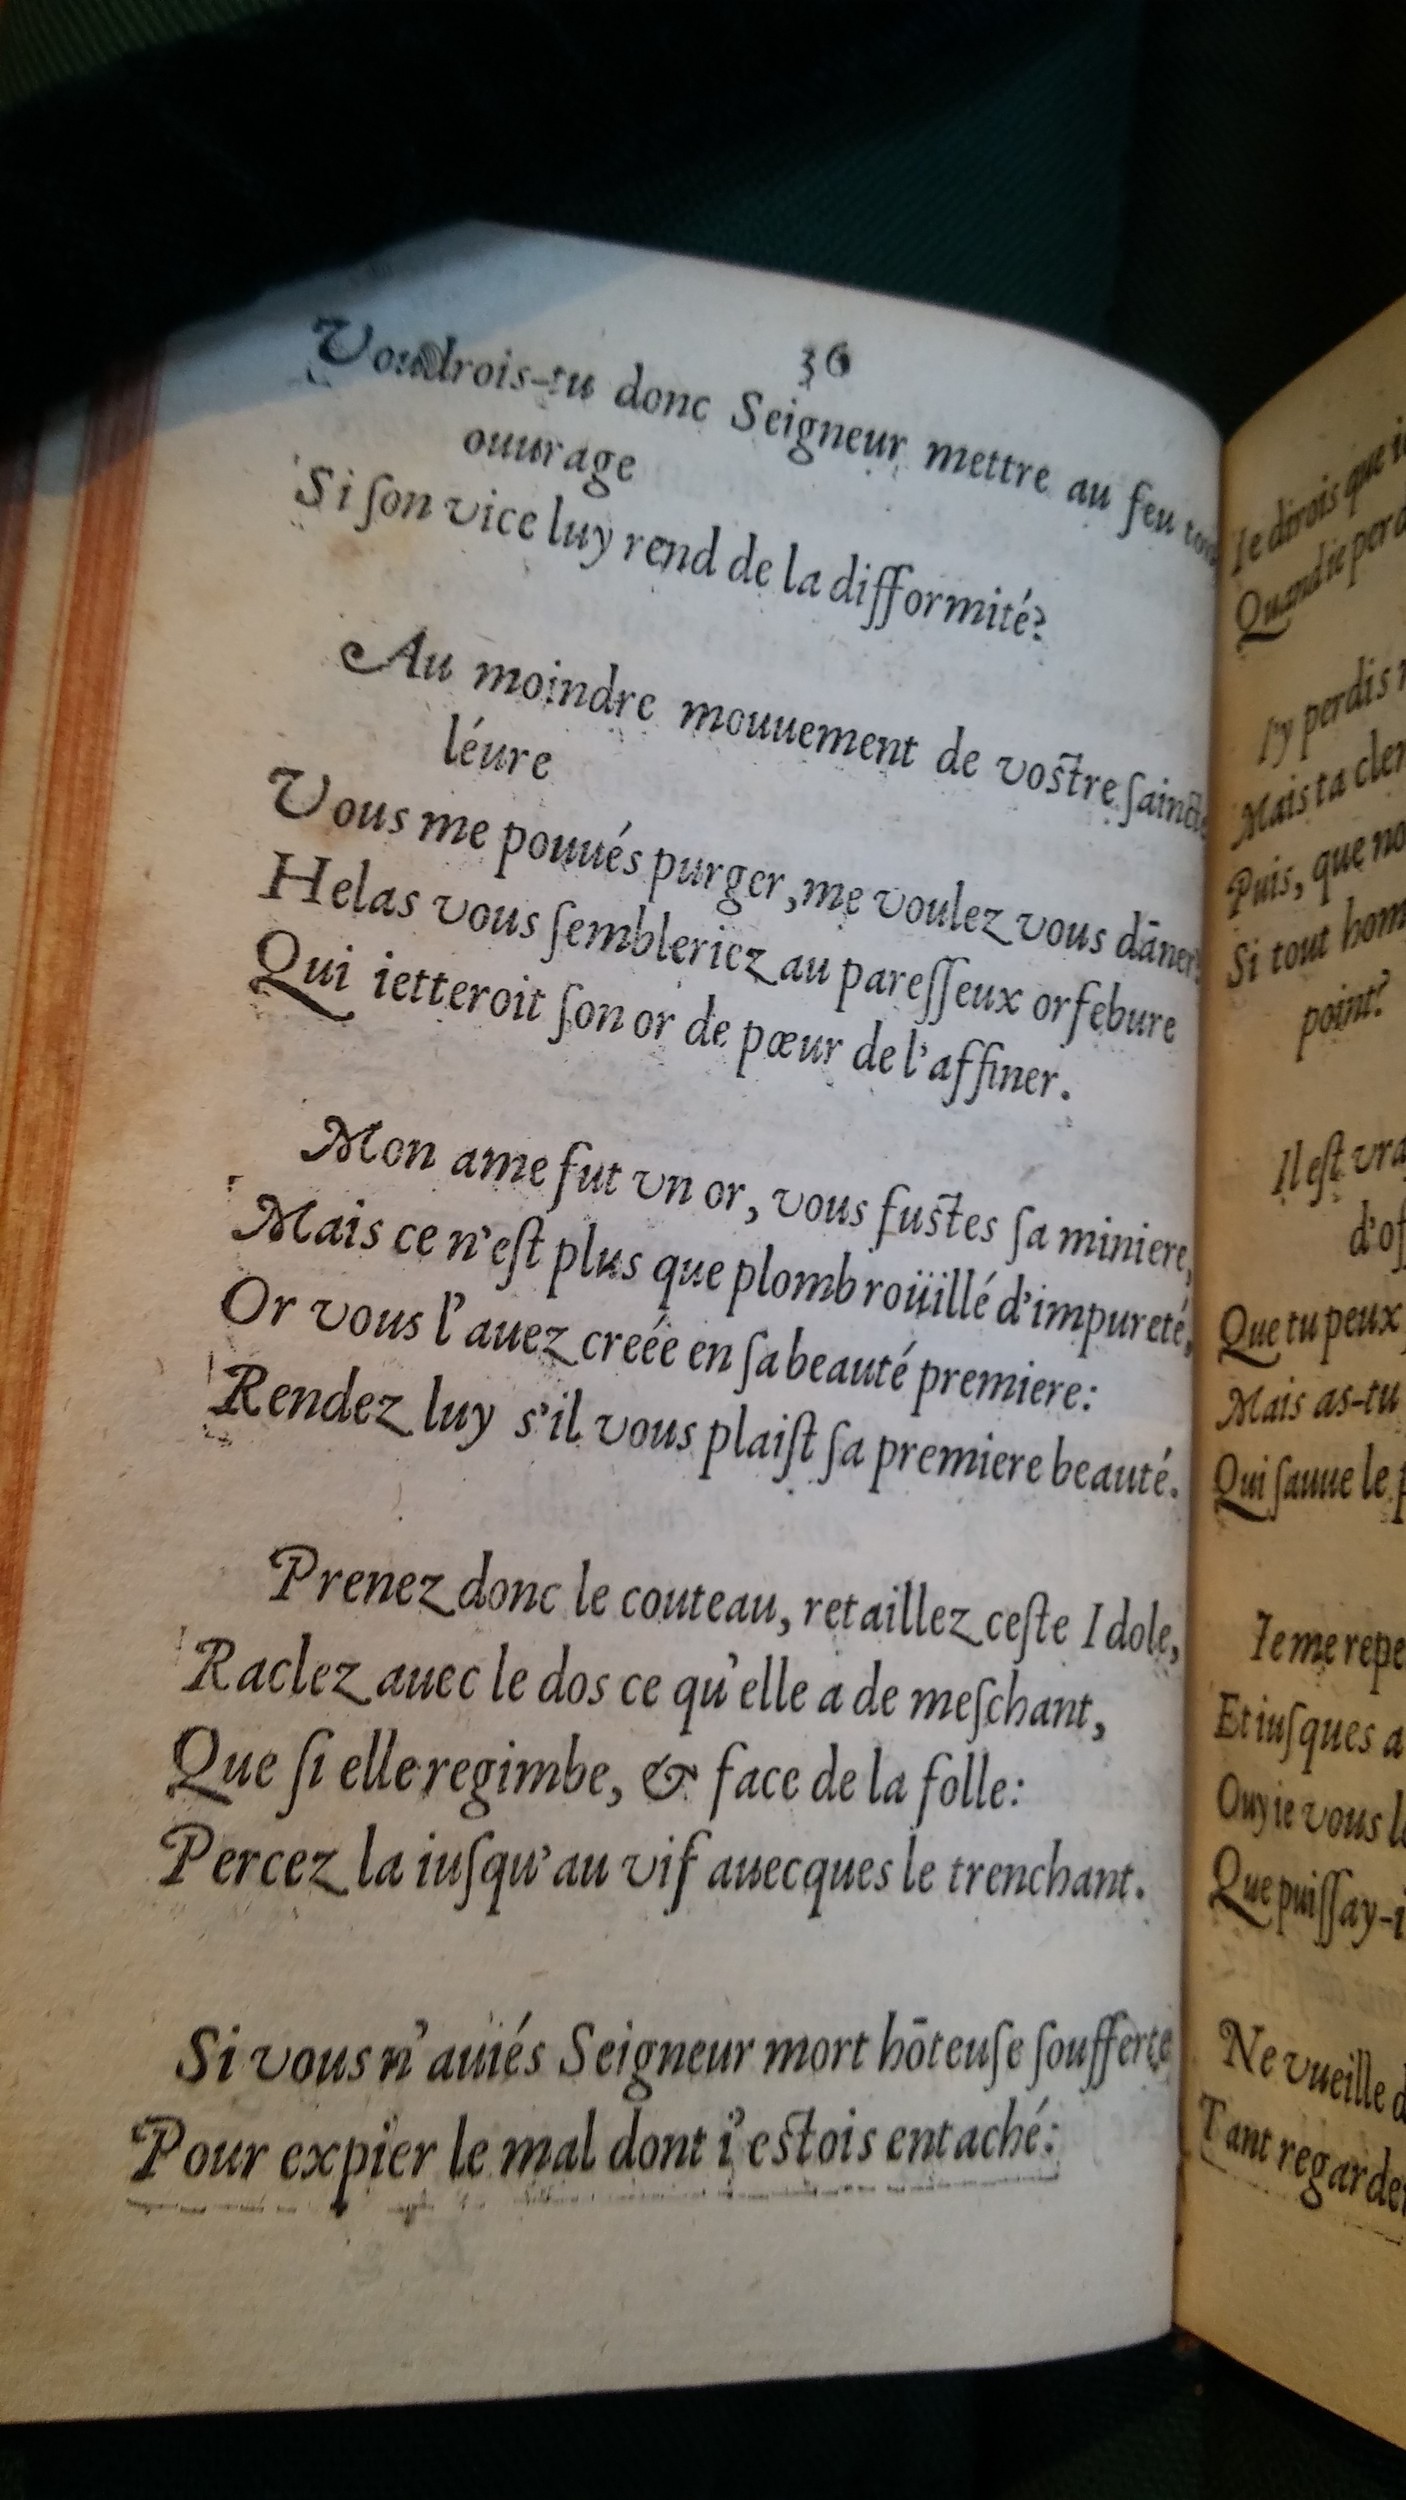 36
Voudrois-tu donc Seigneur mettre au feu ton
ouurage
Si ſon vice luy rend de la difformité?
Au moindre mouuement de voſtre ſaincte
léure
Vous me pouués purger, me voulez vous dāner?
Helas vous ſembleriez au pareſſeux orfebure
Qui ietteroit ſon or de pœur de l'affiner.
Mon ame fut vn or, vous fuſtes ſa miniere,
Mais ce n'eſt plus que plomb roüillé d'impureté,
Or vous l'auez creée en ſa beauté premiere:
Rendez luy s'il vous plaiſt ſa premiere beauté.
Prenez donc le couteau, retaillez ceſte Idole,
Raclez auec le dos ce qu'elle a de meſchant,
Que ſi elle regimbe, & face de la folle:
Percez la iuſqu'au vif auecques le trenchant.
Si vous n'auiés Seigneur mort hōteuſe soufferte
Pour expier le mal dont i'eſtois entaché:
Ie dirois que
Quand ie
I'y perdis
Mais ta
Puis, que
Si tout
point?
Il eſt
Que tu peux
Mais as-tu
Qui ſauue le
Ie me
Et iuſques
Ouy ie vous
Que puiſſay-
Ne vueille
Tant